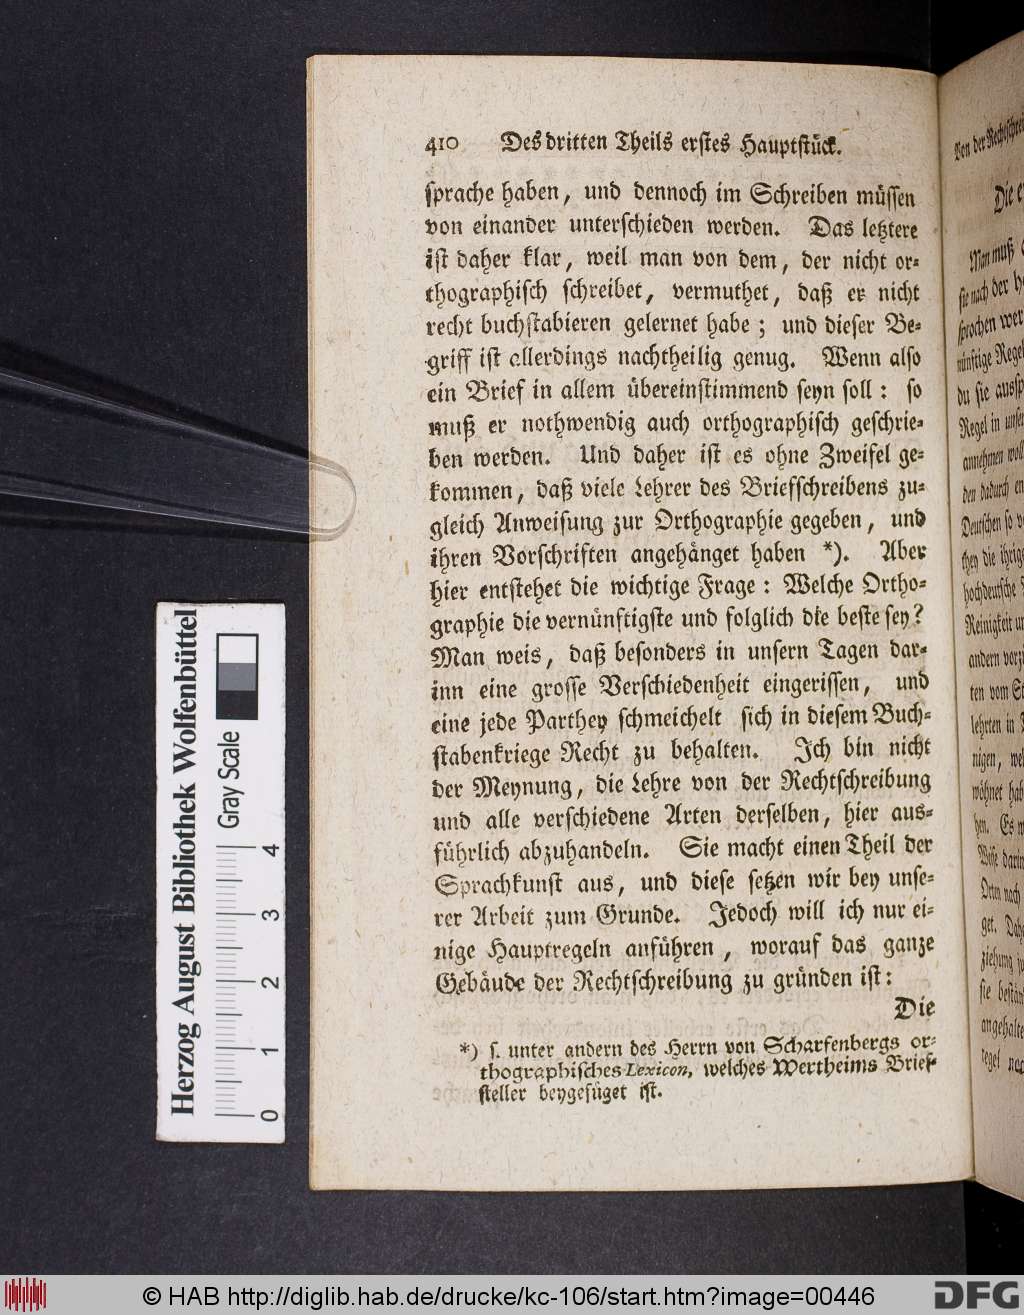 410 Des dritten Theils erstes Hauptstück.
sprache haben, und dennoch im Schreiben müssen
von einander unterschieden werden. Das letztere
ist daher klar, weil man von dem, der nicht or-
thographisch schreibet, vermuthet, daß er nicht
recht buchstabieren gelernet habe; und dieser Be-
griff ist allerdings nachtheilig genug. Wenn also
ein Brief in allem übereinstimmend seyn soll: so
muß er nothwendig auch orthographisch geschrie-
ben werden. Und daher ist es ohne Zweifel ge-
kommen, daß viele Lehrer des Briefschreibens zu-
gleich Anweisung zur Orthographie gegeben, und
ihren Vorschriften angehänget haben *). Aber
hier entstehet die wichtige Frage: Welche Ortho-
graphie die vernünftigste und folglich die beste sey?
Man weis, daß besonders in unsern Tagen dar-
inn eine grosse Verschiedenheit eingerissen, und
eine jede Parthey schmeichelt sich in diesem Buch-
stabenkriege Recht zu behalten. Ich bin nicht
der Meynung, die Lehre von der Rechtschreibung
und alle verschiedene Arten derselben, hier aus-
führlich abzuhandeln. Sie macht einen Theil der
Sprachkunst aus, und diese setzen wir bey unse-
rer Arbeit zum Grunde. Jedoch will ich nur ei-
nige Hauptregeln anführen, worauf das ganze
Gebäude der Rechtschreibung zu gründen ist:
Die
*) s. unter andern des Herrn von Scharfenbergs or-
thographisches Lexicon, welches Wertheims Brief-
steller beygefüget ist.
Herzog August Bibliothek Wolfenbüttel
Gray Scale
0 1 2 3 4
© HAB http://diglib.hab.de/drucke/kc-106/start.htm?image=00446
DFG